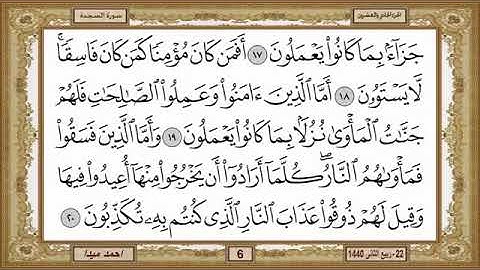 الجزء الحادي والعشرون
سورة السجدة
جَزَآءَۢ بِمَا كَانُوا۟ يَعْمَلُونَ ١٧ أَفَمَن كَانَ مُؤْمِنًا كَمَن كَانَ فَاسِقًا ۚ
لَّا يَسْتَوُۥنَ ١٨ أَمَّا ٱلَّذِينَ ءَامَنُوا۟ وَعَمِلُوا۟ ٱلصَّٰلِحَٰتِ فَلَهُمْ
جَنَّٰتُ ٱلْمَأْوَىٰ نُزُلًۢا بِمَا كَانُوا۟ يَعْمَلُونَ ١٩ وَأَمَّا ٱلَّذِينَ فَسَقُوا۟
فَمَأْوَىٰهُمُ ٱلنَّارُ ۖ كُلَّمَآ أَرَادُوٓا۟ أَن يَخْرُجُوا۟ مِنْهَآ أُعِيدُوا۟ فِيهَا
وَقِيلَ لَهُمْ ذُوقُوا۟ عَذَابَ ٱلنَّارِ ٱلَّذِى كُنتُم بِهِۦ تُكَذِّبُونَ ٢٠
22- ربيع الثاني 1440
6
احمد ميدا